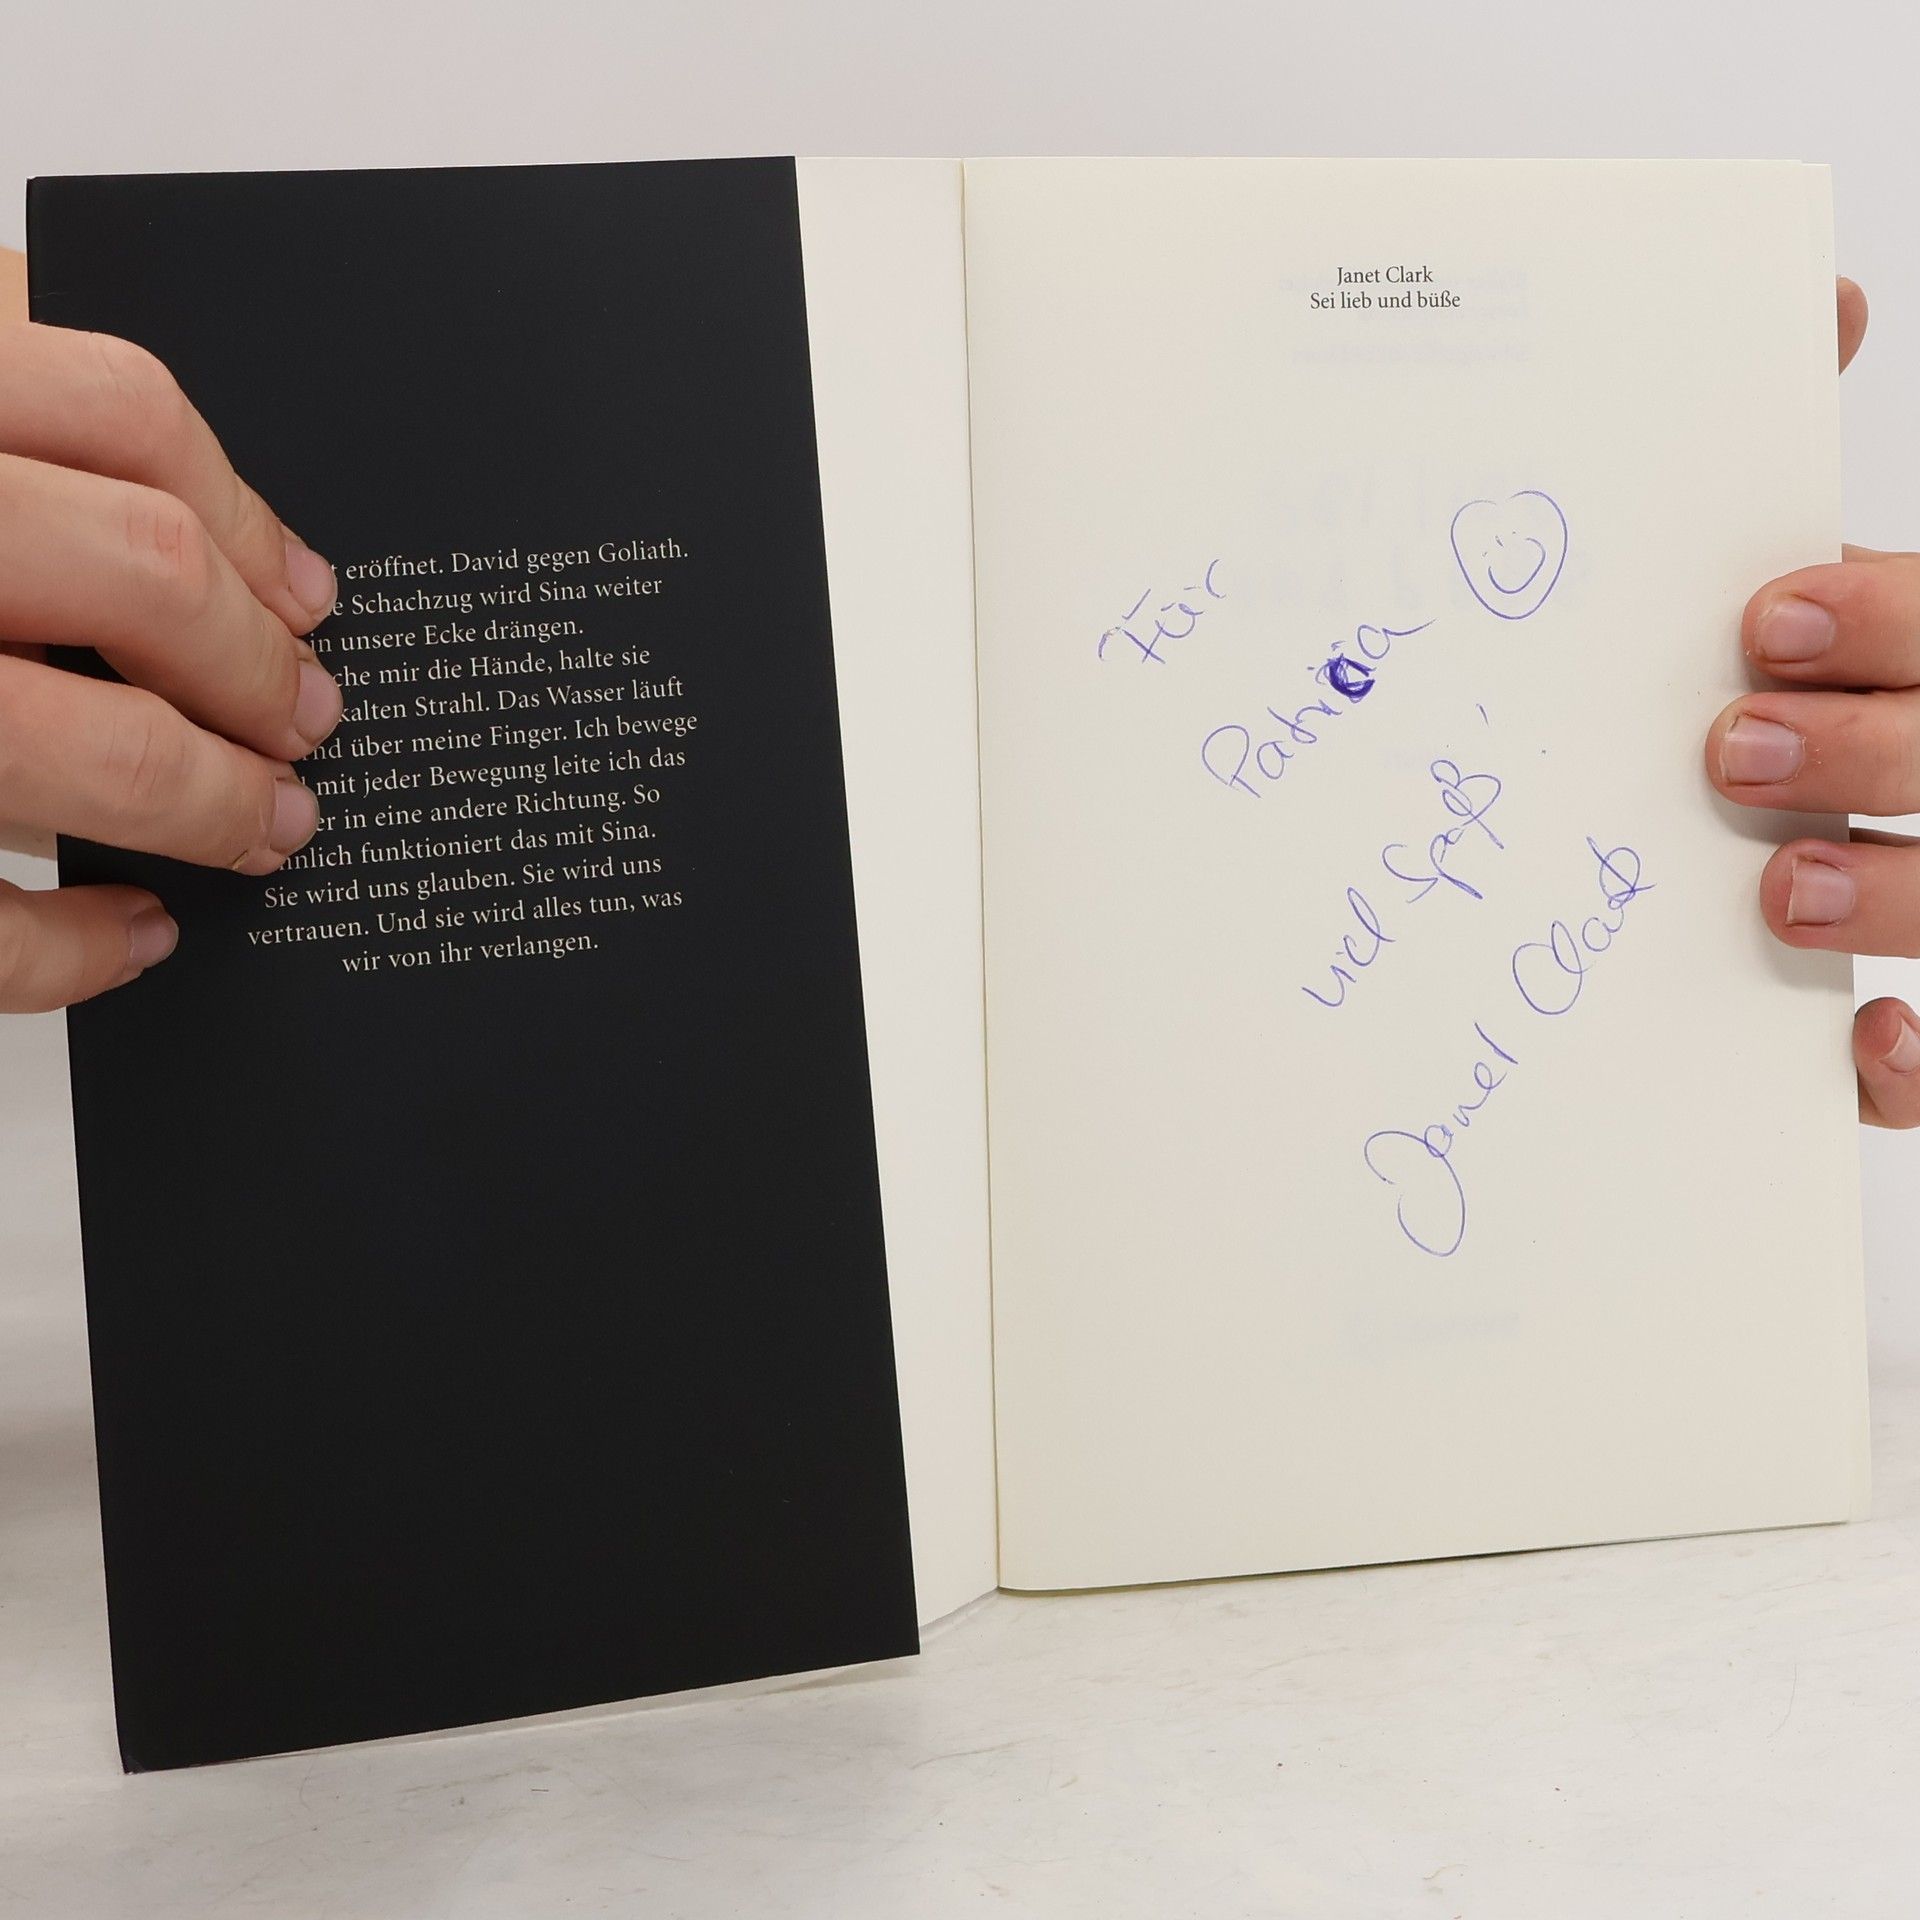 eröffnet. David gegen Goliath.
Schachzug wird Sina weiter
in unsere Ecke drängen.
mir die Hände, halte sie
kalten Strahl. Das Wasser läuft
über meine Finger. Ich bewege
mit jeder Bewegung leite ich das
in eine andere Richtung. So
funktioniert das mit Sina.
Sie wird uns glauben. Sie wird uns
vertrauen. Und sie wird alles tun, was
wir von ihr verlangen.
Janet Clark
Sei lieb und büße
Für
Patricia
viel Spaß!
Janet Clark